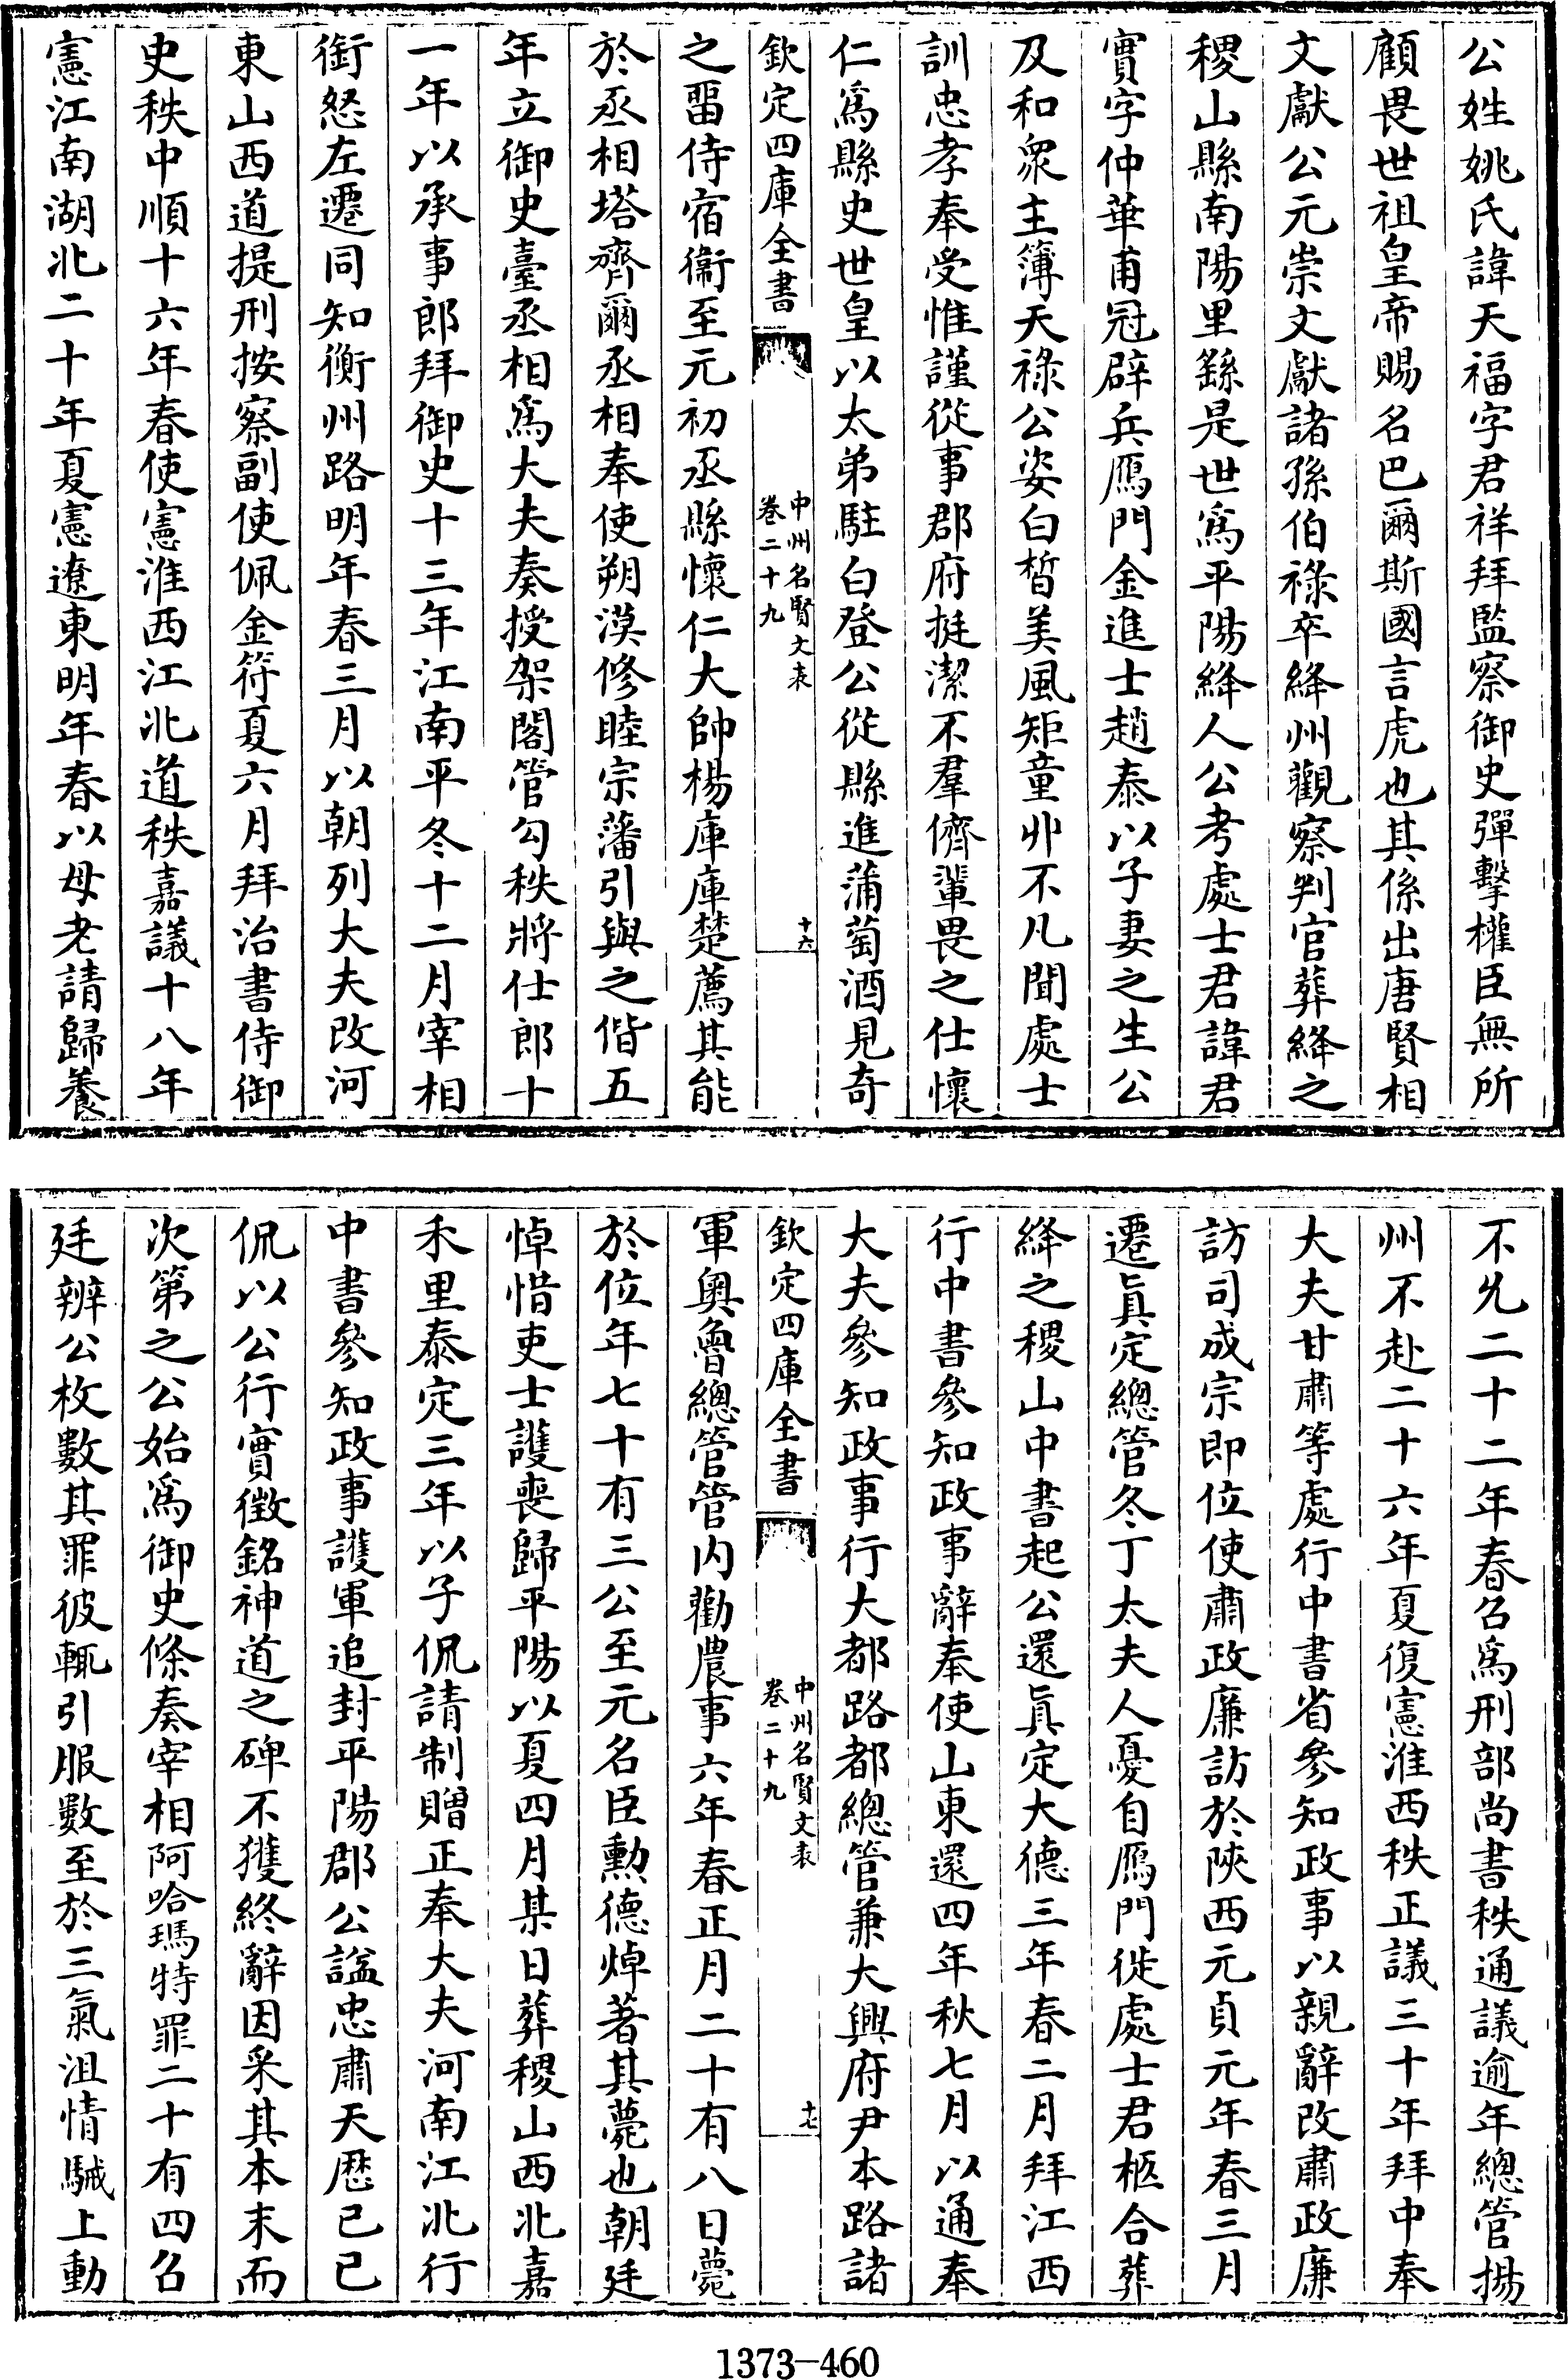 公姓姚氏諱天福字君祥拜監察御史彈擊權臣無所
顧畏世祖皇帝賜名巴爾斯國言虎也其係出唐賢相
文獻公元崇文獻諸孫伯祿卒絳州觀察判官葬絳之
稷山縣南陽里繇是世為平陽絳人公考處士君諱君
實字仲華甫冠辟兵鴈門金進士趙泰以子妻之生公
及和衆主簿天祿公姿白皙美風矩童丱不凡聞處士
訓忠孝奉受惟謹從事郡府挺潔不羣儕輩畏之仕懷
仁為縣史世皇以太弟駐白登公從縣進蒲萄酒見奇
欽定四庫全書
中州名賢文表
卷二十九
十六
之畱侍宿衞至元初丞縣懷仁大帥楊庫庫楚薦其能
於丞相塔齊爾丞相奉使朔漠修睦宗藩引與之偕五
年立御史臺丞相為大夫奏授架閣管勾秩將仕郎十
一年以承事郎拜御史十三年江南平冬十二月宰相
銜怒左遷同知衡州路明年春三月以朝列大夫改河
東山西道提刑按察副使佩金符夏六月拜治書侍御
史秩中順十六年春使憲淮西江北道秩嘉議十八年
憲江南湖北二十年夏憲遼東明年春以母老請歸養
不允二十二年春召為刑部尚書秩通議逾年總管揚
州不赴二十六年夏復憲淮西秩正議三十年拜中奉
大夫甘肅等處行中書省參知政事以親辭改肅政廉
訪司成宗即位使肅政廉訪於陝西元貞元年春三月
遷眞定總管冬丁太夫人憂自鴈門徙處士君柩合葬
絳之稷山中書起公還眞定大德三年春二月拜江西
行中書參知政事辭奉使山東還四年秋七月以通奉
大夫參知政事行大都路都總管兼大興府尹本路諸
欽定四庫全書
中州名賢文表
卷二十九
十七
軍奧魯總管管内勸農事六年春正月二十有八日薨
於位年七十有三公至元名臣勳德焯著其薨也朝廷
悼惜吏士護喪歸平陽以夏四月某日葬稷山西北嘉
禾里泰定三年以子侃請制贈正奉大夫河南江北行
中書參知政事護軍追封平陽郡公諡忠肅天歷己巳
侃以公行實徵銘神道之碑不獲終辭因采其本末而
次第之公始為御史條奏宰相阿哈瑪特罪二十有四召
廷辨公枚數其罪彼輒引服數至於三氣沮情駴上動
1373-460